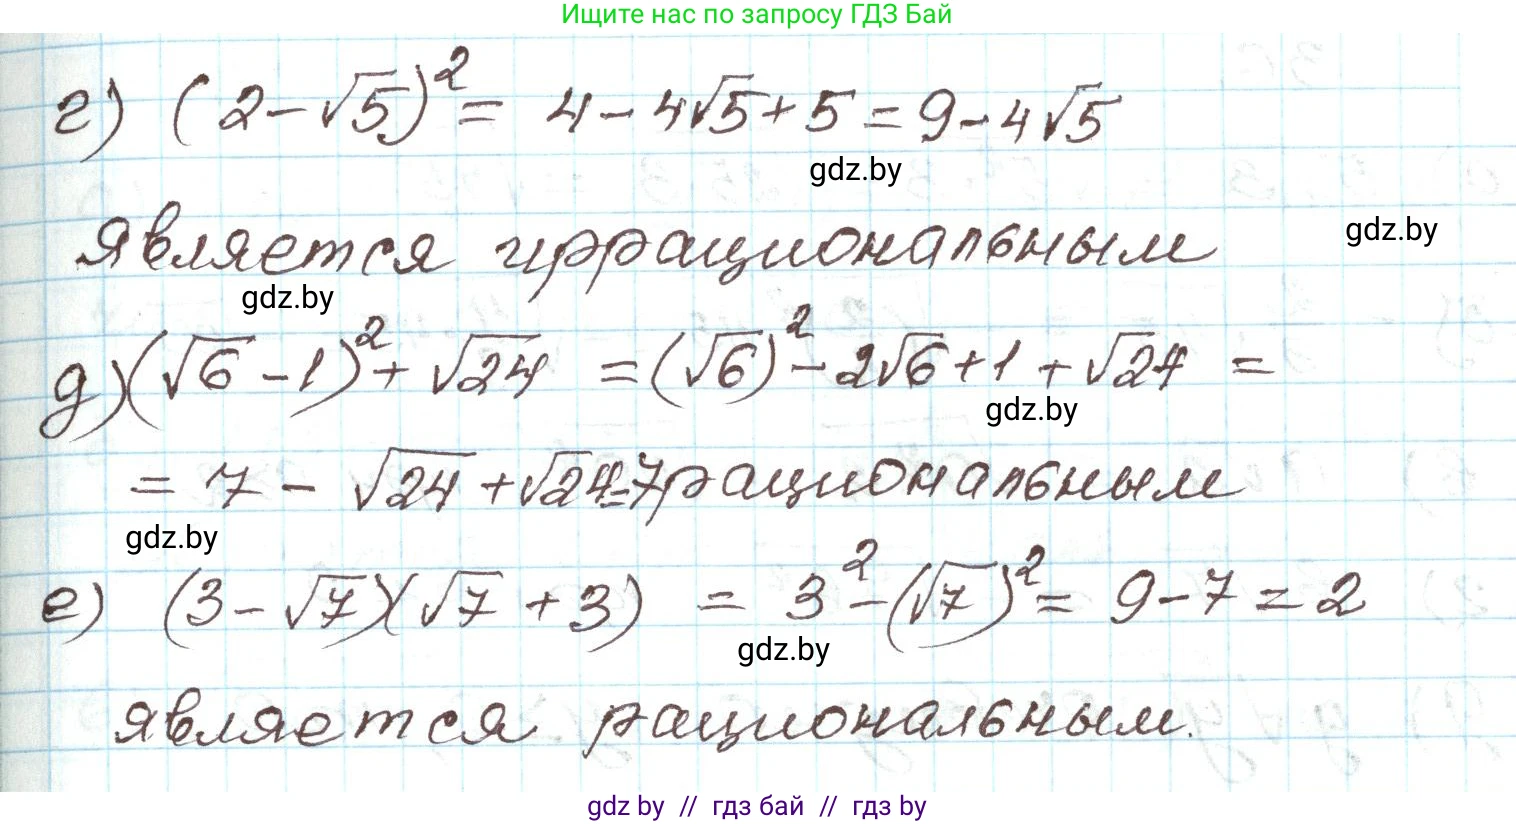 Ищите нас по запросу ГДЗ Бай
г) (2-√5)² = 4-4√5+5=9-4√5
gdz.by
является иррациональным
gdz.by
gdz.by
д)(√6-1)²+√24 =(√6)²-2√6+1+√24 =
gdz.by
=7-√24+√24=7рациональным
gdz.by
е) (3-√7)(√7+3) = 3²-(√7)²= 9-7=2
gdz.by
является рациональным.
gdz by // гдз бай // гдз by